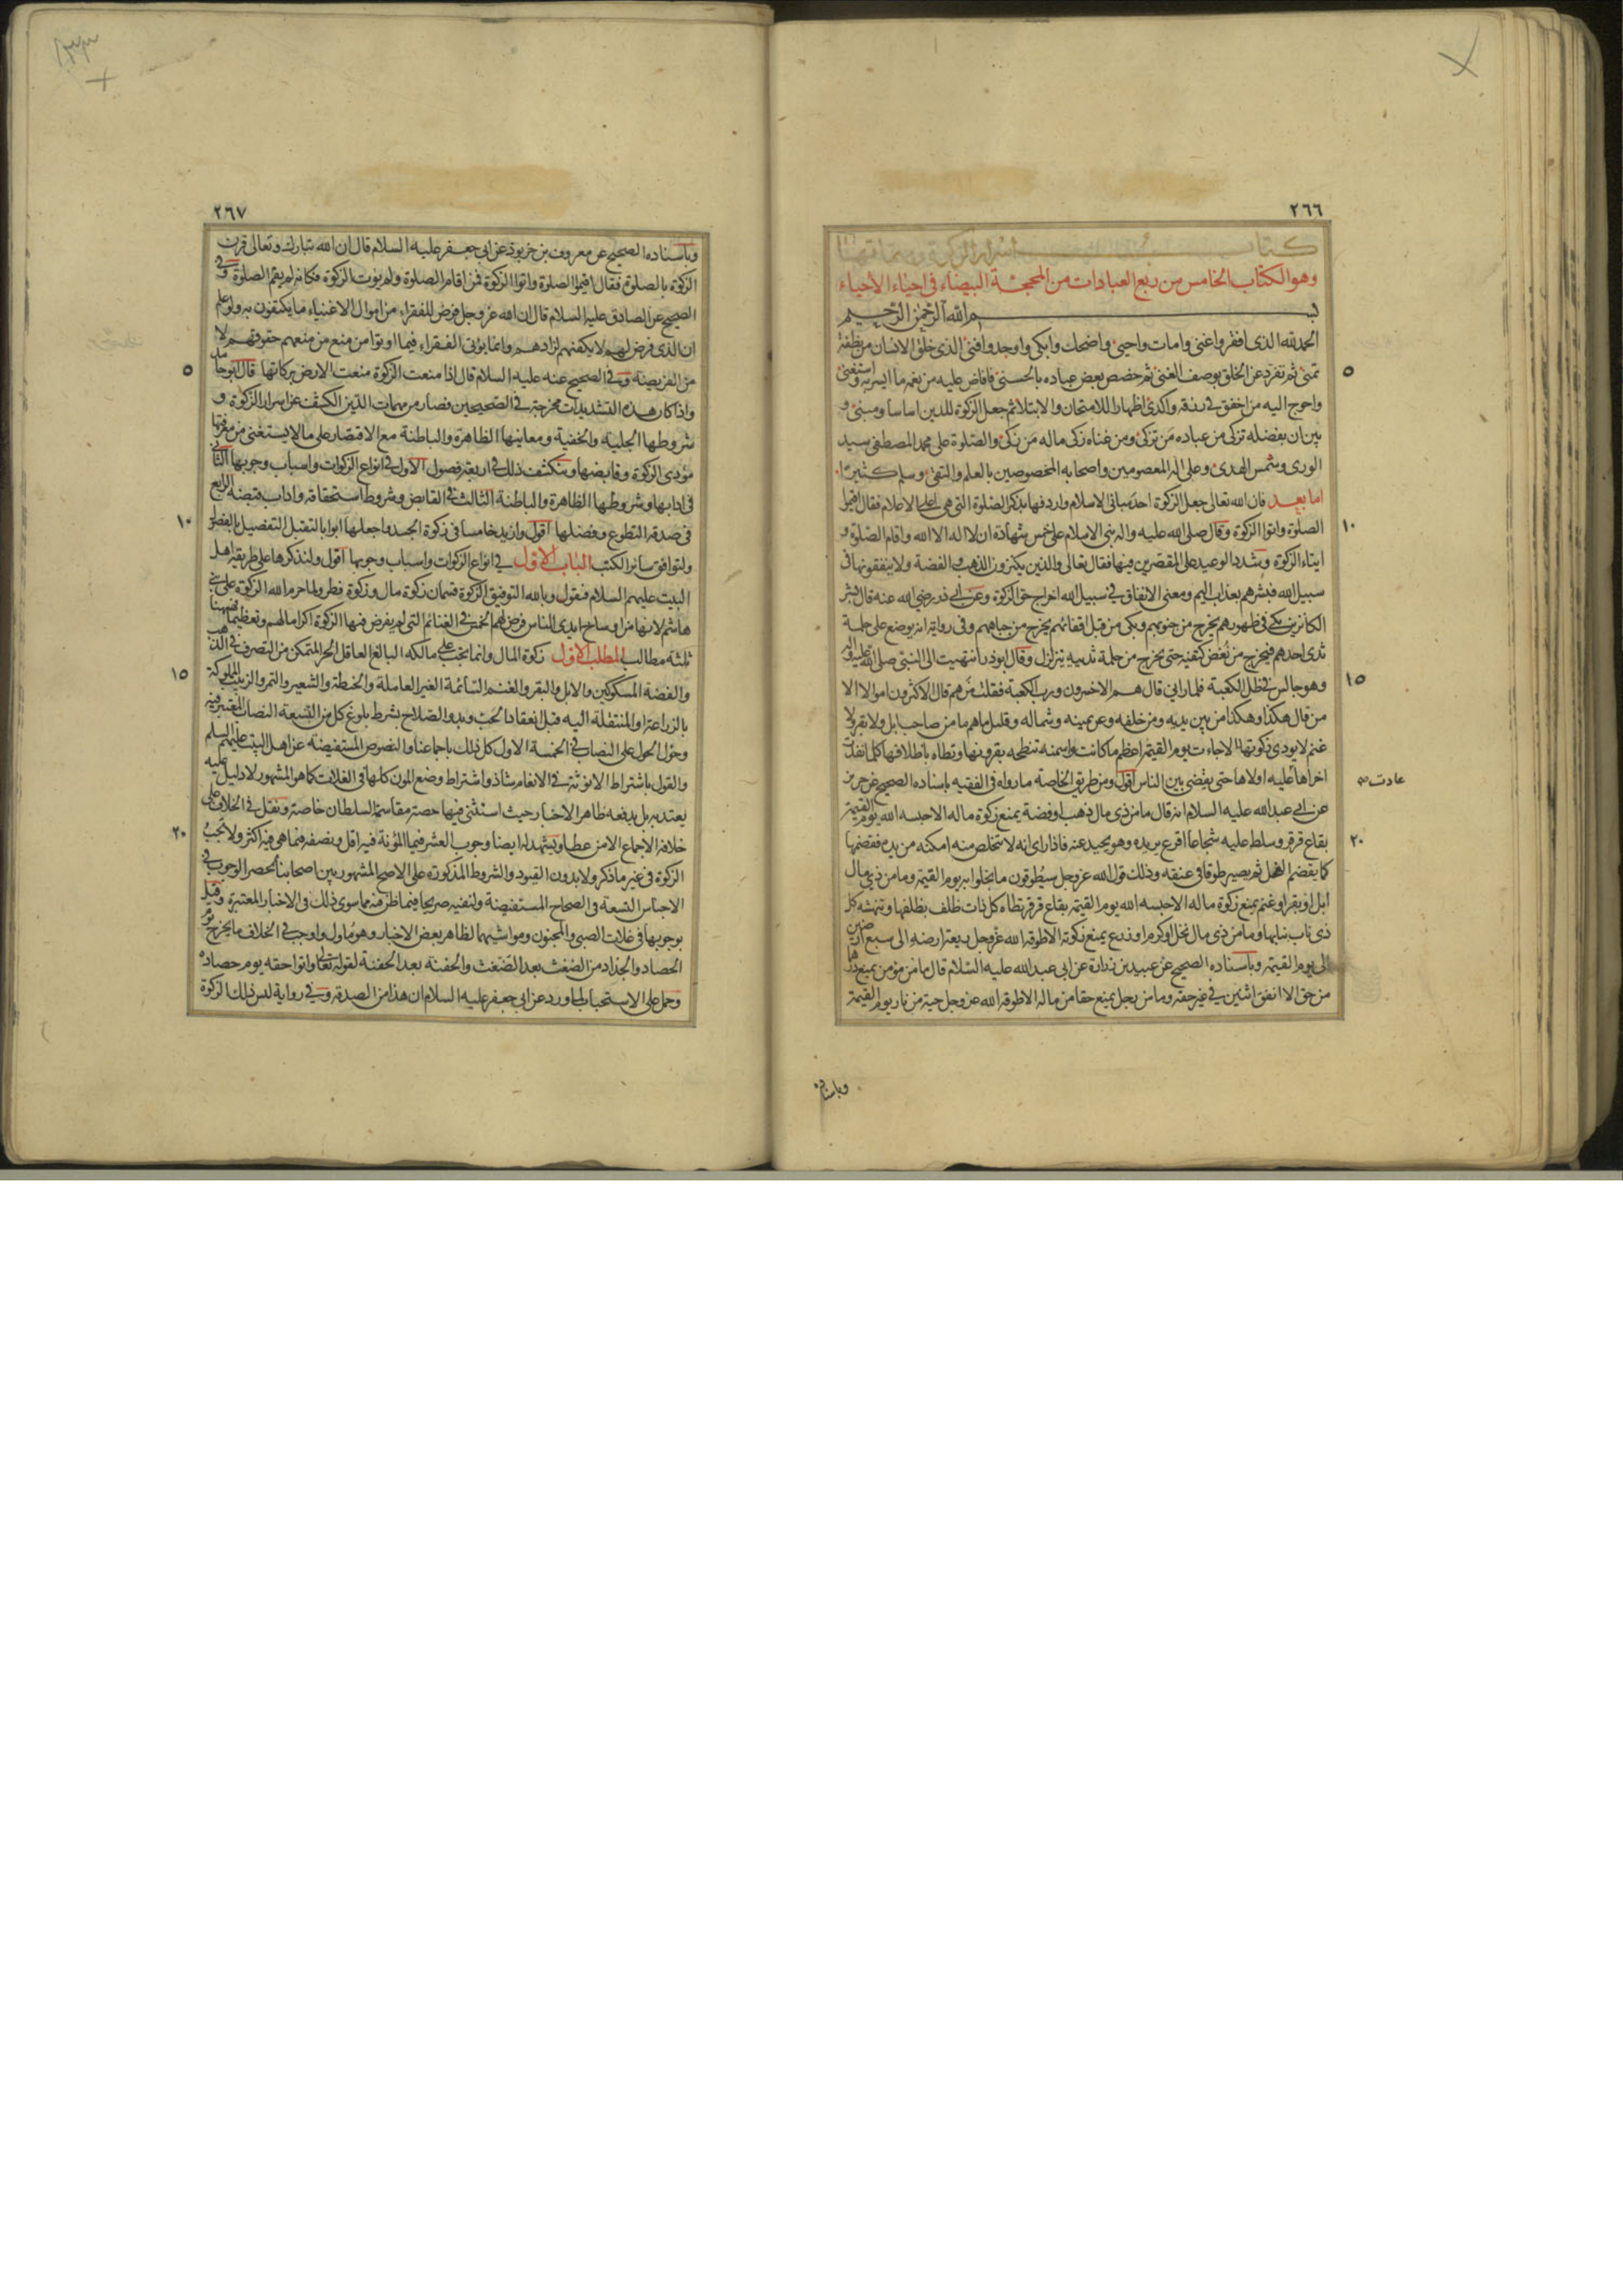 ٢٦٦
كتاب اسرار الزكوة ومهماتها
وهو الكتاب الخامس من ربع العبادات من المحجة البيضاء فى احياء الاحياء
بسم الله الرحمن الرحيم
الحمد لله الذى افقر واغنى وامات واحيى واضحك وابكى واوجد وافنى الذى خلق الانسان من نطفة
تمنى ثم تفرد عن الخلق بوصف الغنى ثم خصص بعض عباده بالحسنى فافاض عليه من نعمه ما ايسر به واستغنى
واحوج اليه من اخفق فى رزقه واكدى اظهارا للامتحان والابتلا ثم جعل الزكوة للدين اساسا ومبنى و
بين ان بفضله تزكى من عباده من تزكى ومن غناه زكى ماله من زكى والصلوة على محمد المصطفى سيد
الورى وشمس الهدى وعلى اله المعصومين واصحابه المخصوصين بالعلم والتقى وسلم كثيرًا
اما بعد فان الله تعالى جعل الزكوة احد مبانى الاسلام واردفها بذكر الصلوة التى هى اعلى الاعلام فقال اقيموا
الصلوة واتوا الزكوة وقال صلى الله عليه واله بنى الاسلام على خمس شهادة ان لا اله الا الله واقام الصلوة و
ايتاء الزكوة وشدد الوعيد على المقصرين فيها فقال تعالى والذين يكنزون الذهب والفضة ولا ينفقونها فى
سبيل الله فبشرهم بعذاب اليم ومعنى الانفاق فى سبيل الله اخراج حق الزكوة وعن ابى ذر رضي الله عنه قال بشر
الكانزين بكى فى ظهورهم يخرج من جنوبهم وبكى من قبل اقفائهم يخرج من جباههم وفى رواية انه يوضع على حلمة
ثدى احدهم فيخرج من نغض كتفيه حتى يخرج من حلمة ثدييه يتزلزل وقال ابوذر انتهيت الى النبى صلى الله عليه واله
وهو جالس فى ظل الكعبة فلما رانى قال هم الاخسرون ورب الكعبة فقلت من هم قال الاكثرون اموالا الا
من قال هكذا وهكذا من بين يديه ومن خلفه وعن يمينه وشماله وقليل ماهم ما من صاحب ابل ولا بقر ولا
غنم لا يودى زكوتها الا جاءت يوم القيمة اعظم ما كانت واسمنه تنطحه بقرونها وتطاه باظلافها كلما نفدت
اخراها عليه اولاها حتى يقضى بين الناس اقول ومن طريق الخاصة ما رواه فى الفقيه باسناده الصحيح عن حريز
عادت صح
عن ابى عبد الله عليه السلام انه قال ما من ذى مال ذهب او فضة يمنع زكوة ماله الا حبسه الله يوم القيمة
بقاع قرقر وسلط عليه شجاعا اقرع يريده وهو يحيد عنه فاذا راى انه لا تتخلص منه امكنه من يده فقضمها
كما يقضم الفحل ثم يصير طوقا فى عنقه وذلك قول الله عز وجل سيُطوقون ما بخلوا به يوم القيمة وما من ذى مال
ابل او بقر او غنم يمنع زكوة ماله الا حبسه الله يوم القيمة بقاع قرقر تطاه كل ذات ظلف بظلفها وتنهشه كل
ذى ناب بنابها وما من ذى مال نخل او كرم او زرع يمنع زكوته الا طوقه الله عز وجل ريعة ارضه الى سبع ارضين
الى يوم القيمة وباسناده الصحيح عن عبيد بن زرارة عن ابى عبد الله عليه السلام قال ما من مؤمن يمنع درهما
من حق الا انفق اثنين فى غير حقه وما من رجل يمنع حقا من ماله الا طوقه الله عز وجل حية من نار يوم القيمة
وباسناده
٢٦٧
وباسناده الصحيح عن معروف بن خربوذ عن ابى جعفر عليه السلام قال ان الله تبارك وتعالى قرن
الزكوة بالصلوة فقال اقيموا الصلوة واتوا الزكوة فمن اقام الصلوة ولم يوت الزكوة فكانه لم يقم الصلوة وفى
الصحيح عن الصادق عليه السلام قال ان الله عز وجل فرض للفقراء من اموال الاغنياء ما يكتفون به ولو علم
ان الذى فرض لهم لا يكفيهم لزادهم وانما يوتى الفقراء فيما اوتوا من منع من منعهم حقوقهم لا
من الفريضة وفى الصحيح عنه عليه السلام قال اذا منعت الزكوة منعت الارض بركاتها قال ابو حامد
واذا كان هذه التشديدات مخرجة فى الصحيحين فصار من مهمات الدين الكشف عن اسرار الزكوة و
شروطها الجلية والخفية ومعاينها الظاهرة والباطنة مع الاقتصار على ما لا يستغنى عن معرفتها
مؤدى الزكوة وقابضها وينكشف ذلك فى اربعة فصول الاول فى انواع الزكوات واسباب وجوبها الثانى
فى ادابها وشروطها الظاهرة والباطنة الثالث فى القابض وشروط استحقاقه واداب قبضه الرابع
فى صدقة التطوع وفضلها اقول وازيد خامسا فى زكوة الجسد واجعلها ابوابا
ولتوافق سائر الكتب الباب الاول فى انواع الزكوات واسباب وجوبها اقول ولنذكرها على طريقة اهل
البيت عليهم السلام فنقول وبالله التوفيق الزكوة قسمان زكوة مال وزكوة فطر ولما حرم الله الزكوة على بنى
هاشم لانها من اوساخ ايدى الناس فرض لهم الخمس فى الغنائم التى لم يفرض فيها الزكوة اكراما لهم وتعظيما فههنا
ثلثة مطالب المطلب الاول زكوة المال وانما تجب على مالكه البالغ العاقل الحر المتمكن من التصرف فى الذهب
والفضة المسكوكين والابل والبقر والغنم السائمة الغير العاملة والحنطة والشعير والتمر والزبيب المملوكة
بالزراعة او المنتقلة اليه قبل انعقاد الحب وبدو الصلاح بشرط بلوغ كل من التسعة النصاب المعتبر فيه
وحول الحول على النصاب فى الخمسة الاول كل ذلك باجماعنا والنصوص المستفيضة عن اهل البيت عليهم السلم
والقول باشتراط الانوثة فى الانعام شاذ واشتراط وضع المون كلها فى الغلات كما هو المشهور لا دليل عليه
يعتد به بل يدفعه ظاهر الاخبار حيث استثنى فيها حصة مقاسمة السلطان خاصة ونقل فى الخلاف على
خلافه الاجماع الا من عطا ويشهد له ايضا وجوب العشر فيما المؤنة فيه اقل ونصفه فيما هى فيه اكثر ولا تجب
الزكوة فى غير ما ذكر ولا بدون القيود والشروط المذكورة على الاصح المشهور بين اصحابنا لحصر الوجوب فى
الاجناس التسعة فى الصحاح المستفيضة ولنفيه صريحا فيما ظن فيه مما سوى ذلك فى الاخبار المعتبرة وقيل
بوجوبها فى غلات الصبى والمجنون ومواشيهما لظاهر بعض الاخبار وهو مأول واوجب فى الخلاف ما يخرج يوم
الحصاد والجداد من الضغث بعد الضغث والحفنة بعد الحفنة لقوله تعالى واتوا حقه يوم حصاده
وحمل على الاستحباب لما ورد عن ابى جعفر عليه السلام ان هذا من الصدقة وفى رواية ليس ذلك الزكوة